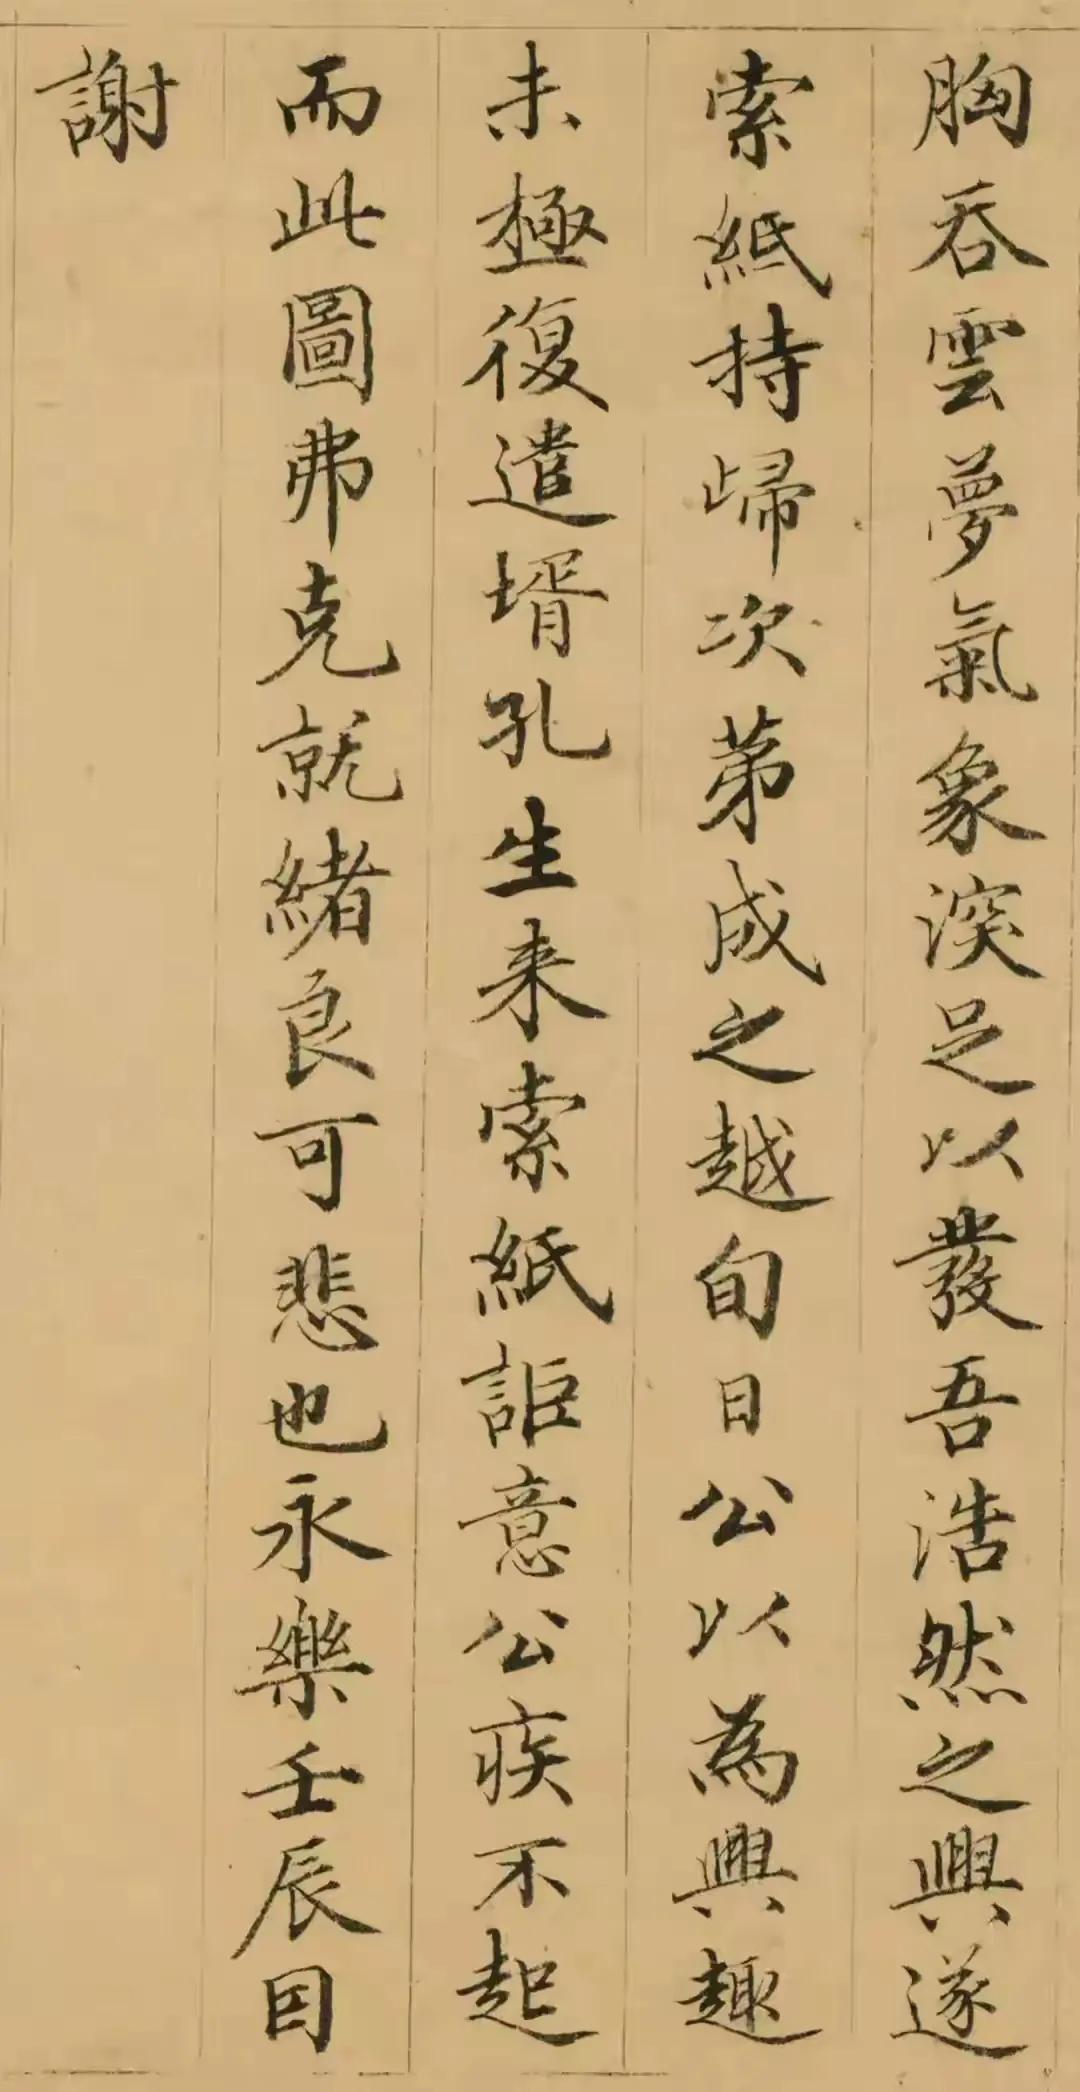 胸吞雲夢氣象深足以發吾浩然之興遂
索紙持歸次第成之越旬日公以為興趣
未極復遣壻孔生来索紙詎意公疾不起
而此圖弗克就緒良可悲也永樂壬辰因
謝